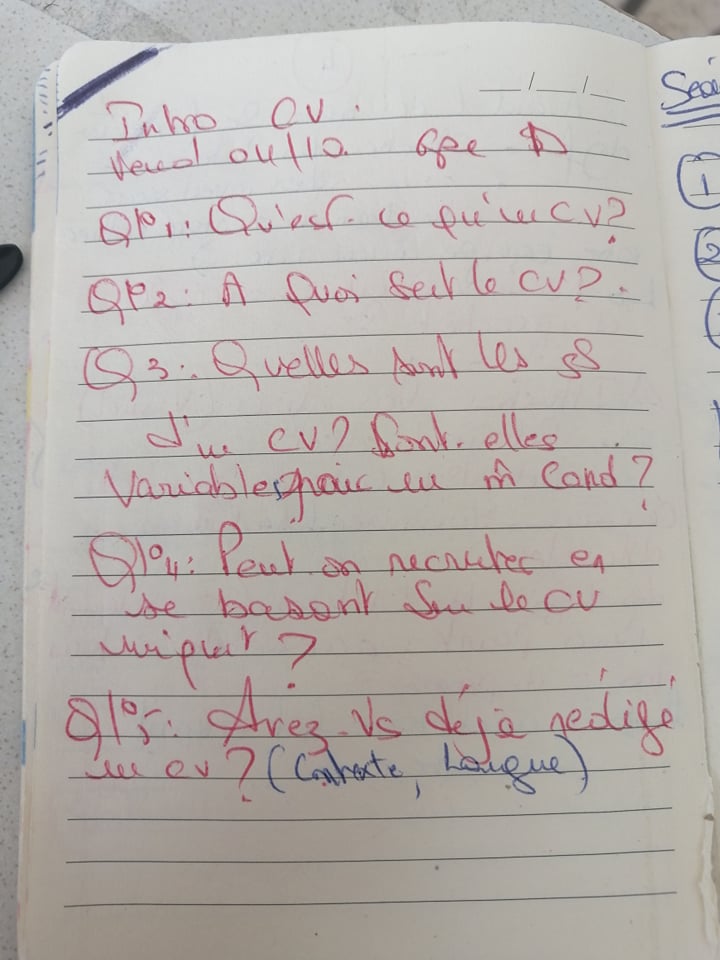 Intro CV.
Vend 04/10 Gpe D
QP1: Qu'est-ce qu'un CV?
QP2: A quoi sert le CV?.
Q3: Quelles sont les
d'un CV? Sont-elles
Variables, pour un m̂ Cand?
QP4: Peut on recruter en
se basant sur le CV
uniqut?
QP5: Avez-Vs déjà rédigé
un cv? (Contexte, Langue)
1
2